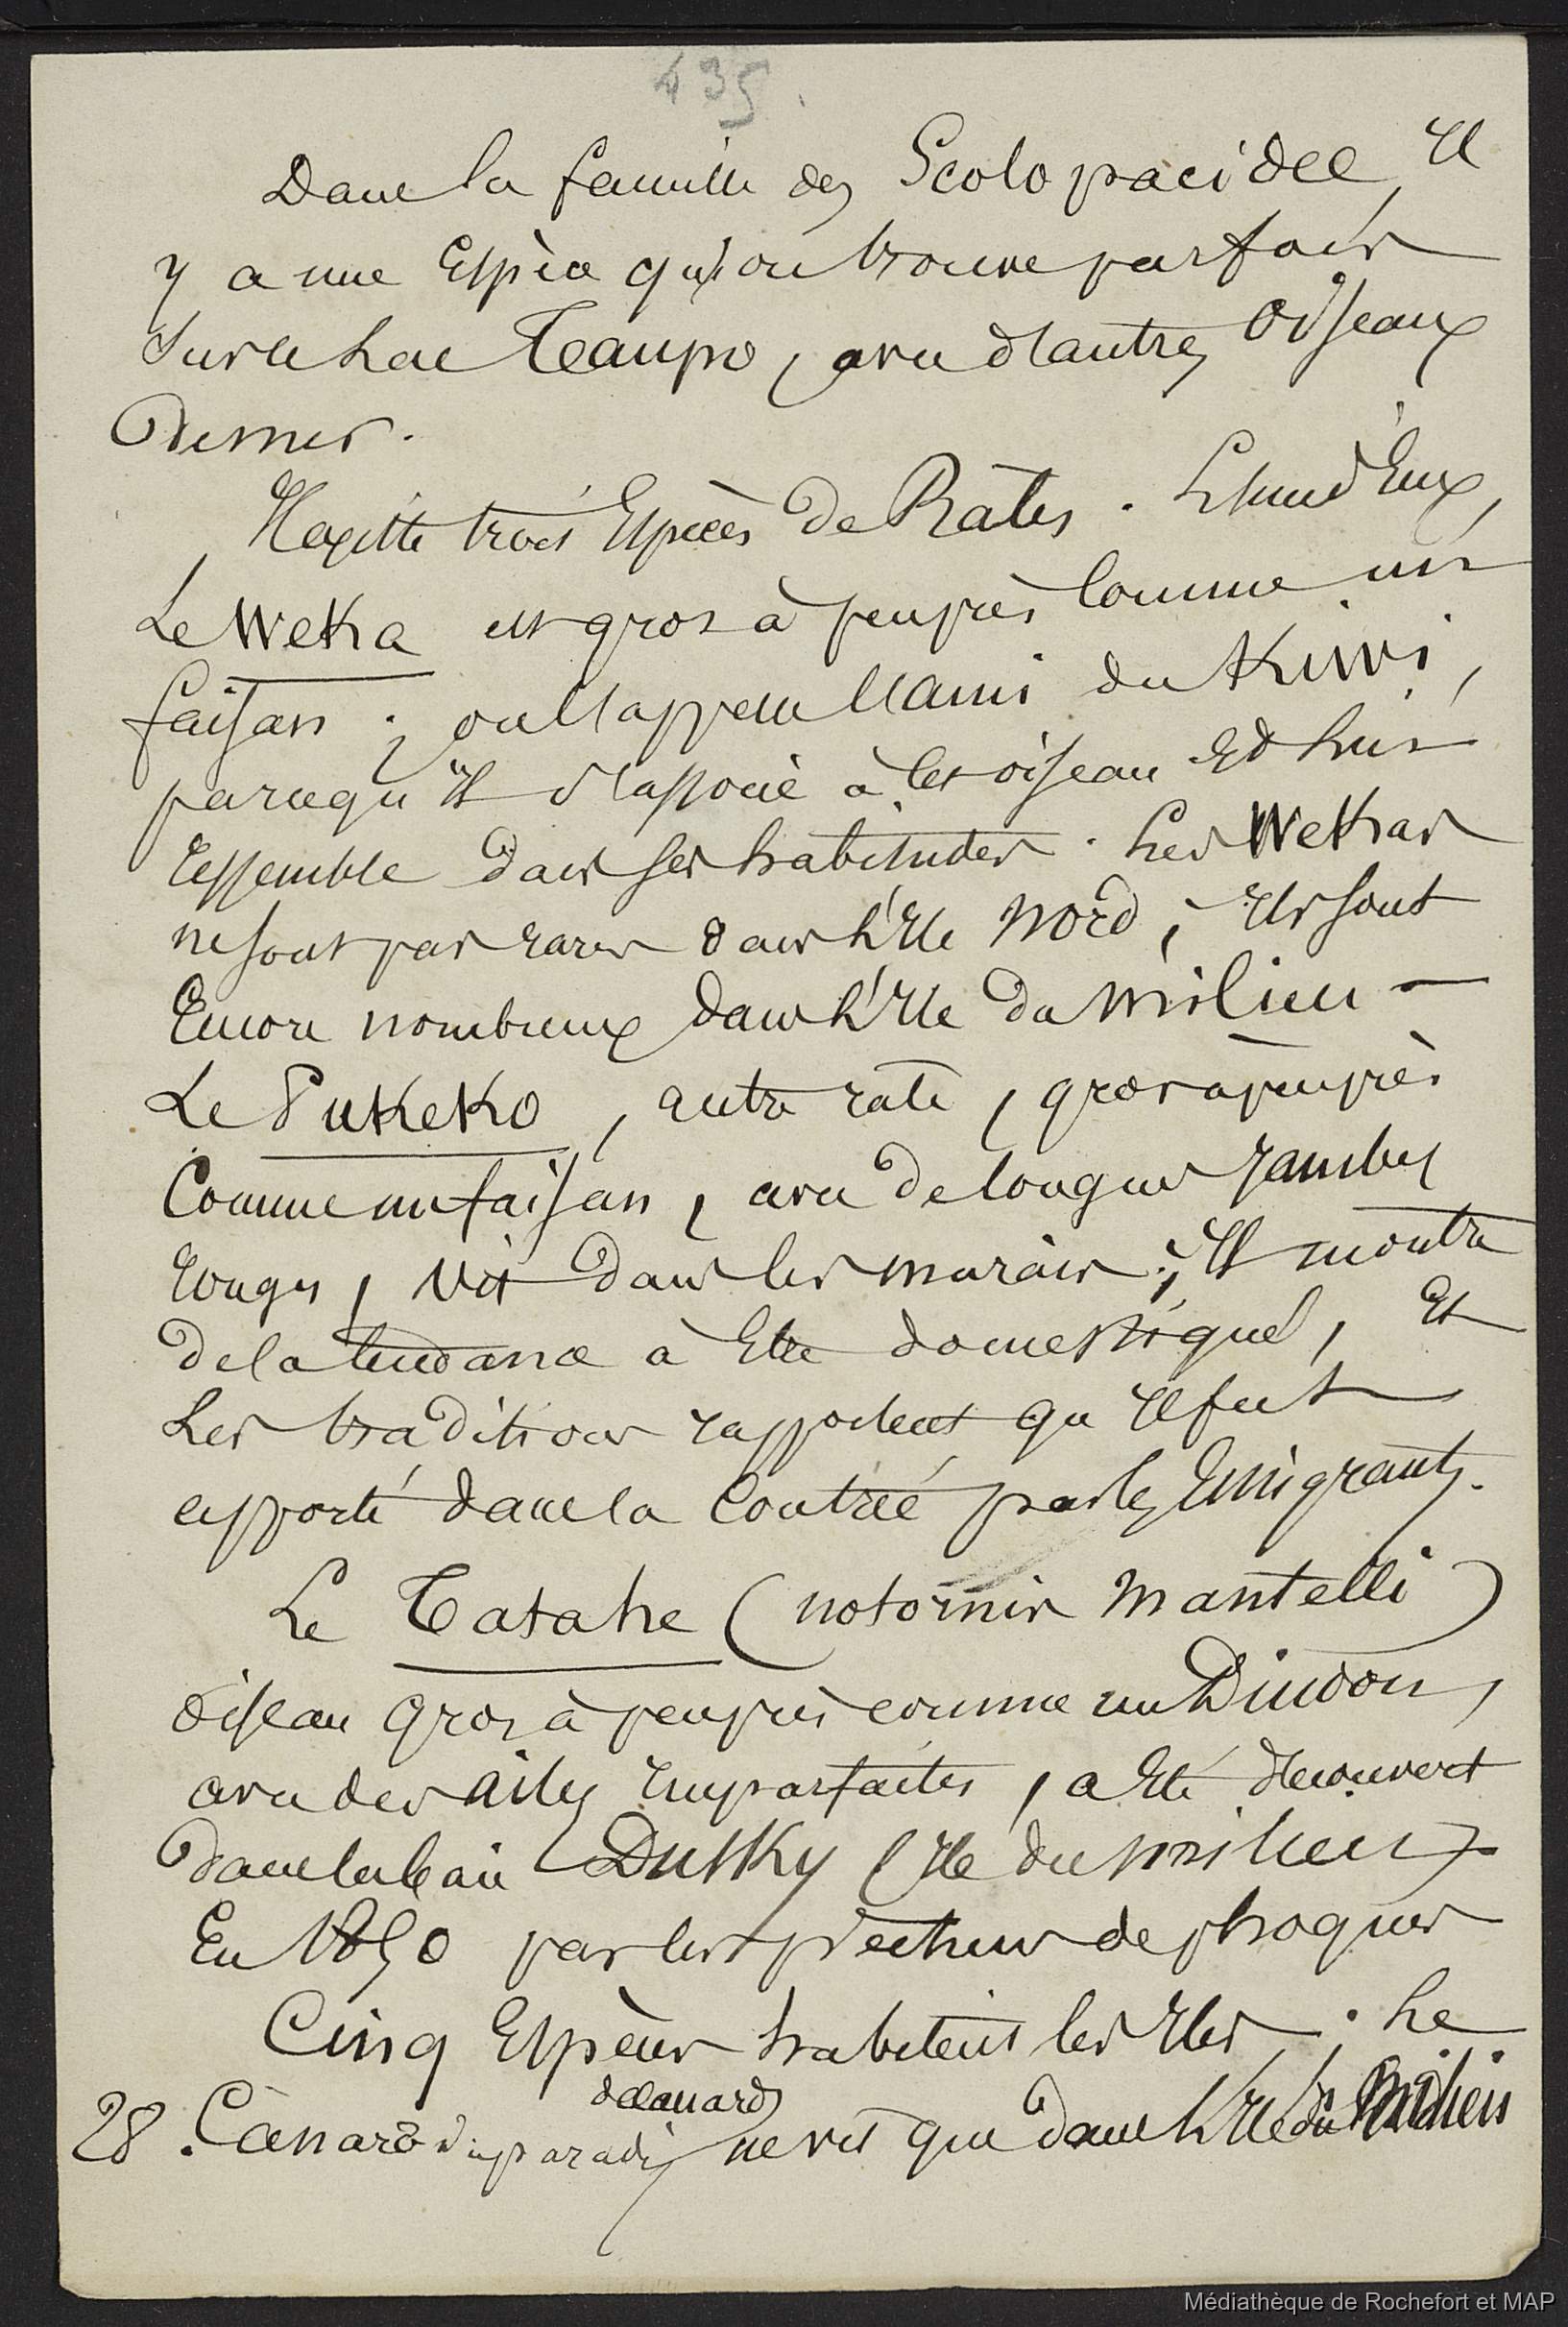 435.
Dans la famille des Scolopacidee, Il
y a une Espèce qu'on trouve parfois
sur le Lac Teaupo, avec d'autres Oiseaux
De mer.
Il existe trois Espèces de Rales. L'un d'Eux,
Le Weka est gros à peu près Comme un
faisan ; on l'appelle l'ami du Kiwi,
parcequ'Il s'associe à cet oiseau Et lui
ressemble Dans ses habitudes. Les Wekas
ne sont pas rares dans L'Ile Nord ; Ils sont
Encore nombreux dans L'Ile Du Milieu —
Le Pukeko, autre rale, gros à peu près
Comme un faisan, avec De longues Jambes
rouges, vit Dans les marais ; Il montre
De la tendance à Etre domestiqué, Et
Les traditions rapportent qu'Il fut
apporté dans la Contrée par les Emigrants.
Le Tatahe (notornis Mantelli)
Oiseau gros à peu près comme un Dindon,
avec des ailes Imparfaites, a Eté découvert
Dans la baie Dusky (Ile du milieu)
En 1850 par les pêcheurs de phoques
Cinq Espèces de canards habitent les Iles ; Le
28. Canard du paradis ne vit que dans L'Ile du Milieu